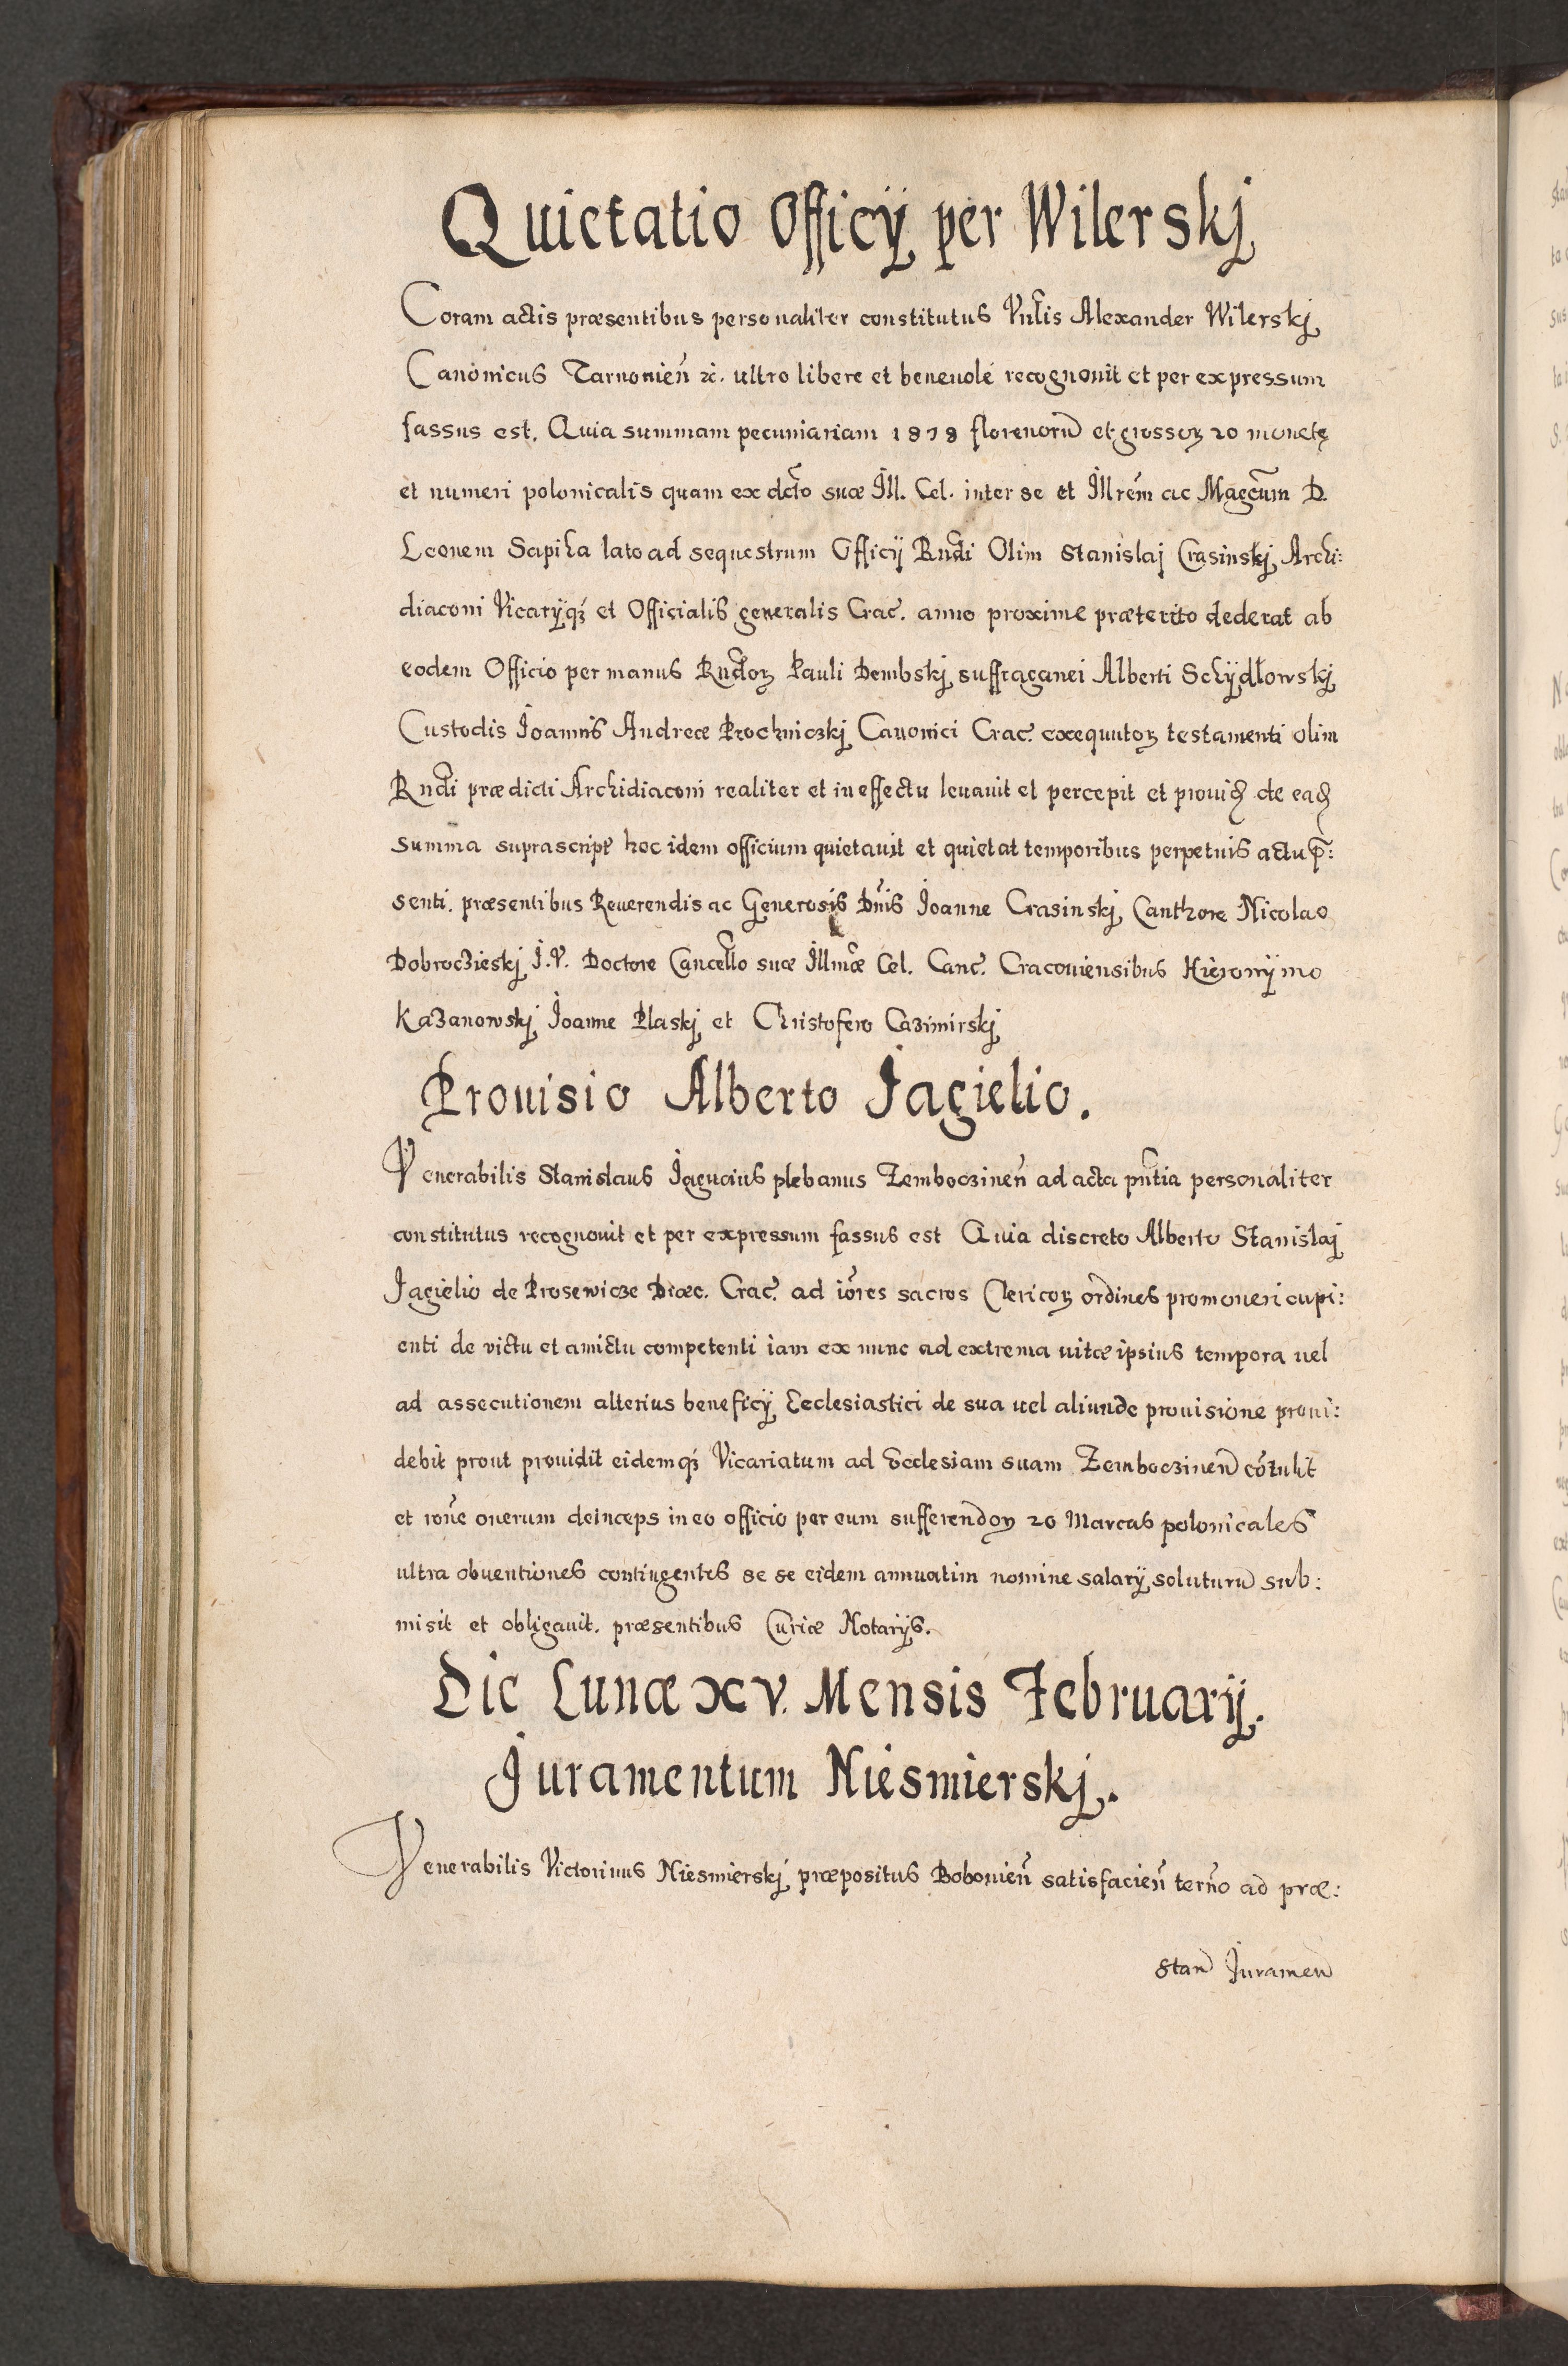 Quietatio Officÿ per Wilerskj
Coram actis præsentibus personaliter constitutus Vnlis Alexander Wilerskj
Canonicus Tarnonień &c. ultro libere et beneuolé recognouit et per expressum
fassus est. Quia summam pecuniariam 1878 florenorũ et grossoꝝ 20 monetę
et numeri polonicalis quam ex dcto suæ Ill. Cel. inter se et Illrém ac Magcum D.
Leonem Sapiha lato ad sequestrum Officÿ Rndi Olim Stanislaj Crasinskj Archi:
diaconi Vicarÿqꝫ et Officialis generalis Crac. anno proxime præterito dederat ab
eodem Officio per manus Rndoꝝ Pauli Dembskj suffraganei Alberti Schÿdłowskj
Custodis Ioannis Andreæ Prochniczkj Canonici Crac. exequutoꝝ testamenti olim
Rndi prædicti Archidiaconi realiter et in effectu leuauit et percepit et de
summa suprascript hoc idem officium quietauit et quietat temporibus perpetuis actu p̃:
senti. præsentibus Reuerendis ac Generosis Dnis Ioanne Crasinskj Canthore Nicolao
Dobroczieskj I.V. Doctore Cancello suæ Illmæ Cel. Canc. Cracouiensibus Hieronÿmo
Kazanowskj Ioanne Plaskj et Christofero Cazimirskj
Prouisio Alberto Jagielio.
Venerabilis Stanislaus plebanus Zemboczineń ad acta pntia personaliter
constitutus recognouit et per expressum fassus est Quia discreto Alberto Stanislaj
Jagielio de Prosewicze Diœc. Crac. ad iores sacros Clericoꝝ ordines promoueri cupi:
enti de victu et amictu competenti iam ex nunc ad extrema uitæ ipsius tempora uel
ad assecutionem alterius beneficÿ Ecclesiastici de sua uel aliunde prouisione proui:
debit prout prouidit eidemqꝫ Vicariatum ad Ecclesiam suam Zemboczineñ cótulit
et róne onerum deinceps in eo officio per eum sufferendoꝝ 20 Marcas polonicales
ultra obuentiones contingentes se se eidem annuatim nomine salarÿ soluturũ sub:
misit et obligauit. præsentibus Curiæ Notarÿs.
Die Lunæ XV. Mensis Februarÿ.
Juramentum Niesmierskj.
Venerabilis Victorinus Niesmierskj præpositus Bobonień satisfacień termno ad præ:
stañ Iurameñ